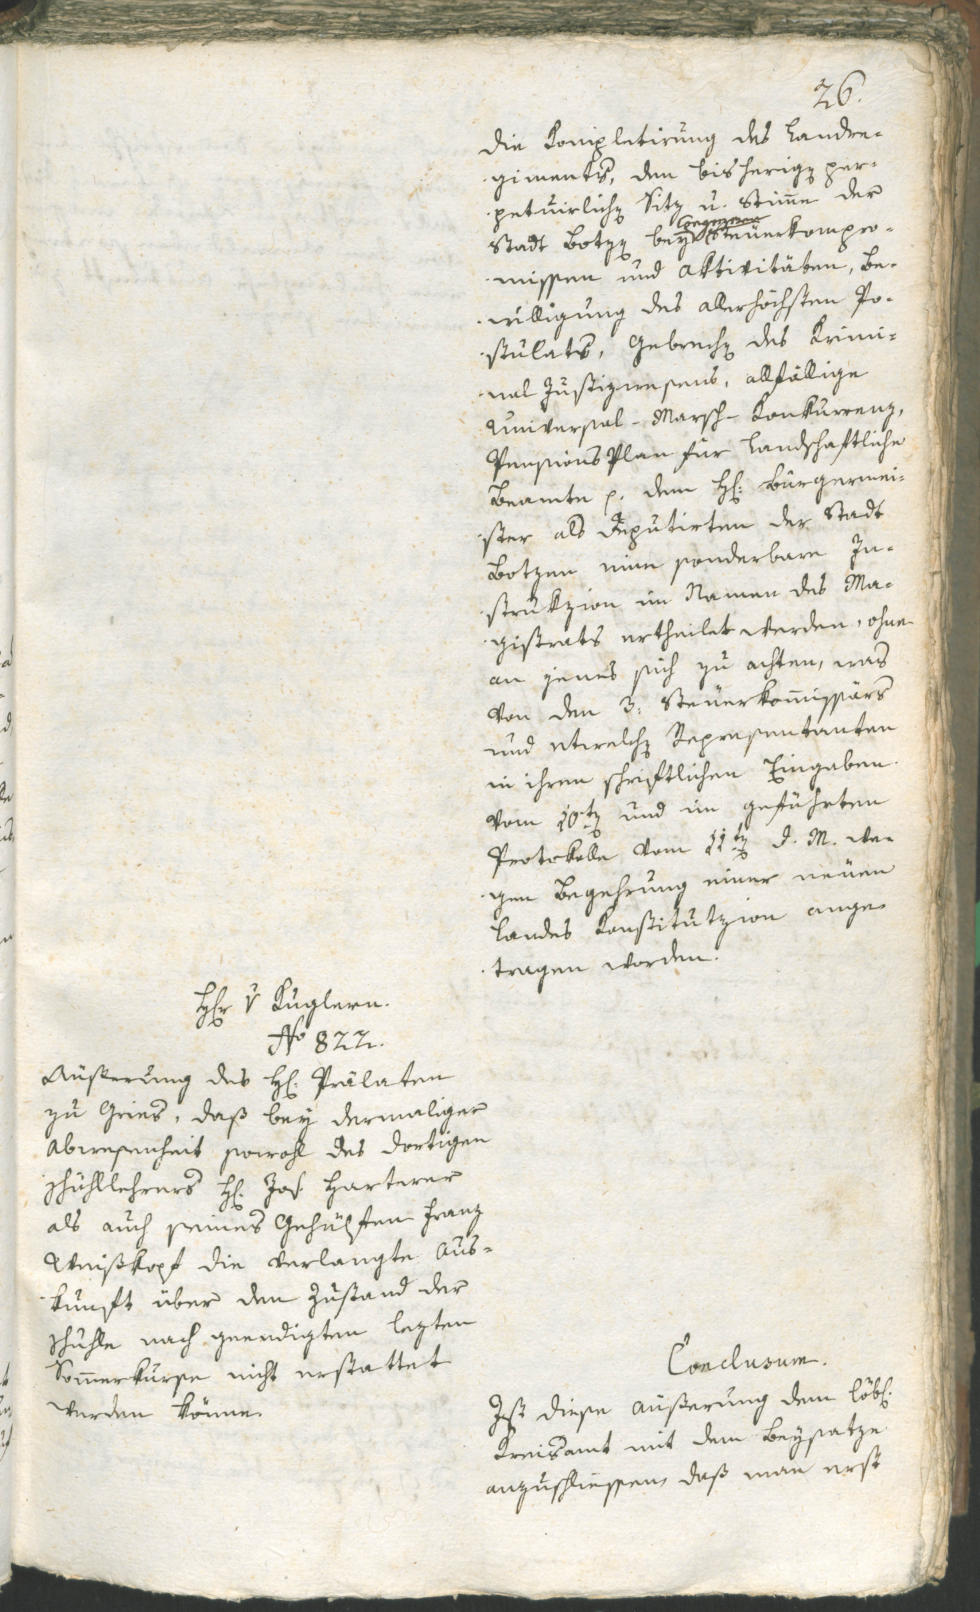 26.
die Kompletirung des Landre-
giments, den bisherigen per-
petuirlichen Sitz u. Stimme der
Stadt Botzen bey Steuerkompro-
missen und Aktivitäten, Be-
willigung des allerhöchsten Po-
stulats, Gebrechen des Krimi-
nal Justizwesens, allfällige
Universal-Marsch-Konkurrenz,
Pensions Plan für Landschaftliche
Beamte p. dem H: Bürgermei-
ster als Deputirten der Stadt
Botzen eine sonderbare In-
strukzion im Namen des Ma-
gistrats ertheilet werden, ohne
an jenes sich zu achten, was
von den 3. Steuerkommissärs
und etwelchen Repräsentanten
in ihren schriftlichen Eingaben
vom 10ten und im geführten
Protokolle vom 11ten d. M. we-
gen Begehrung einer neuen
Landes Konstitutzion ange-
tragen worden.
Hr v Kuglern.
No 822.
Äußerung des H: Prälaten
zu Gries, daß bey dermaliger
Abwesenheit sowohl des dortigen
Schullehrers H: Jos. Harterer
als auch seines Gehülfen Franz
Weißkopf die verlangte Aus-
kunft über den Zustand der
Schule nach geendigten lezten
Sommerkurse nicht erstattet
werden könne.
Conclusum.
Ist diese Äußerung dem löbl:
Kreisamt mit dem Beysatze
anzuschliessen, daß man erst